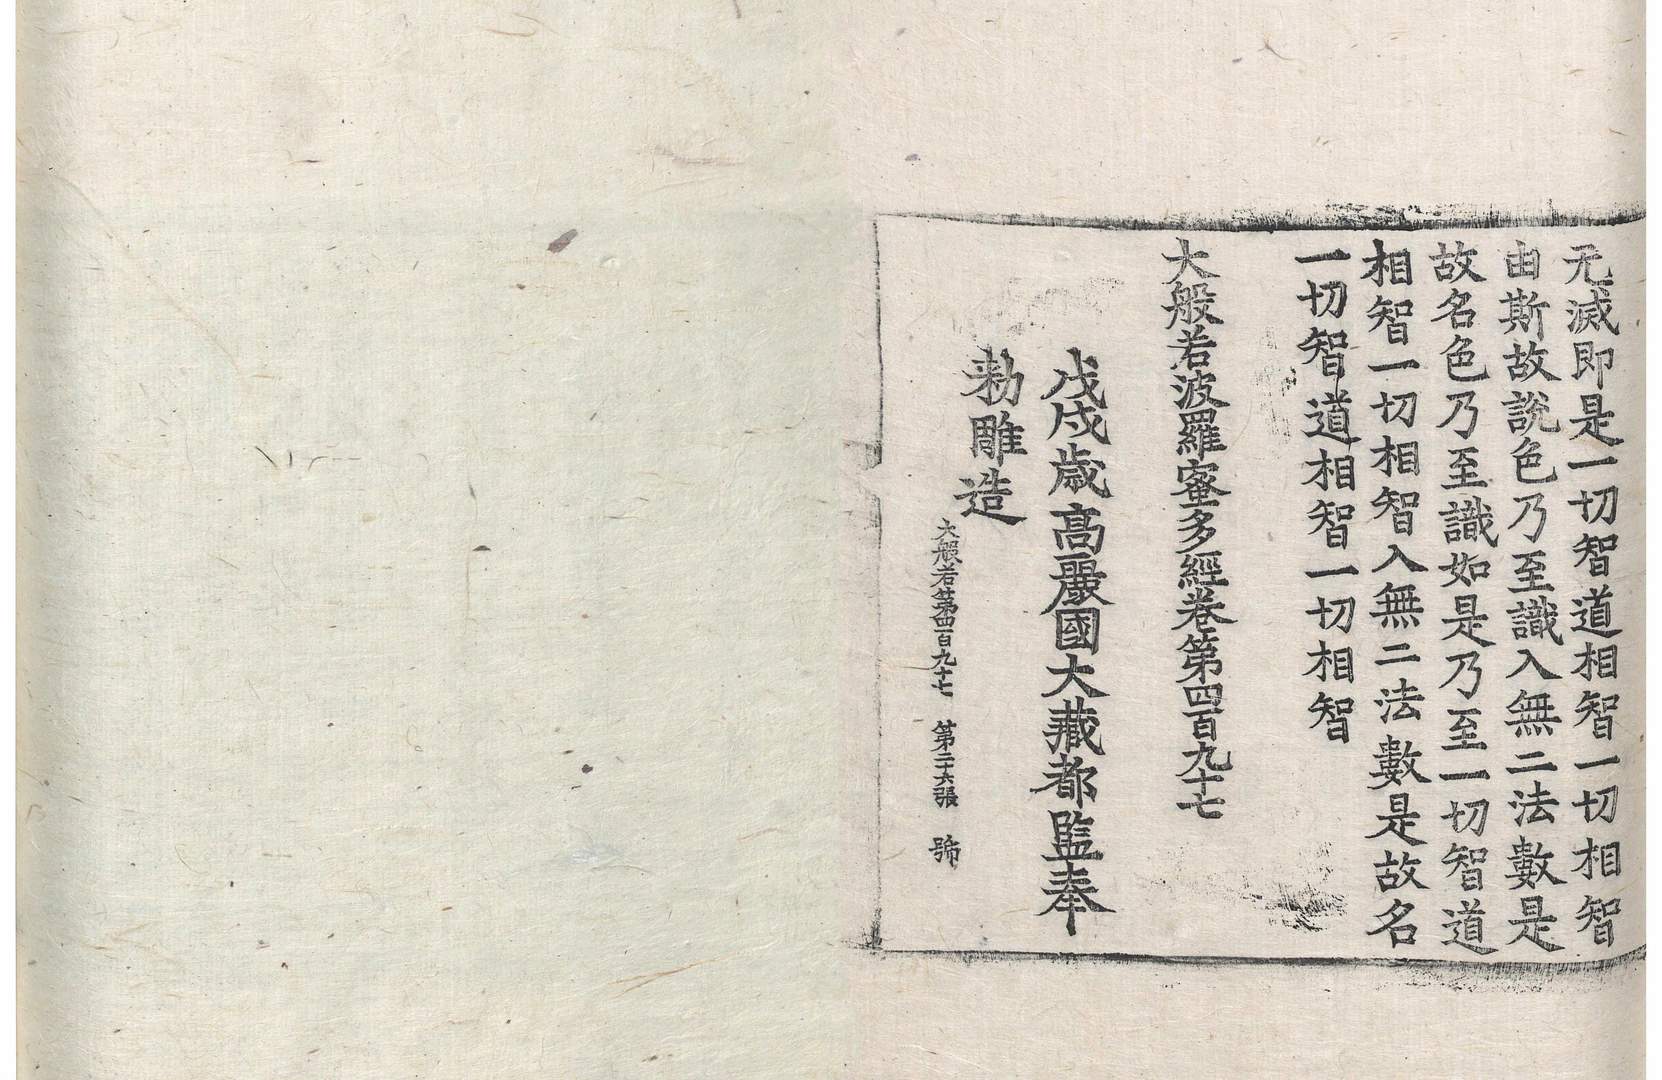 无滅即是一切智道相智一切相智
由斯故說色乃至識入無二法數是
故名色乃至識如是乃至一切智道
相智一切相智入無二法數是故名
一切智道相智一切相智
大般若波羅蜜多經卷第四百九十七
戊戌歳高麗國大藏都監奉
勑雕造
大般若第四百九十七 第二十六張 號